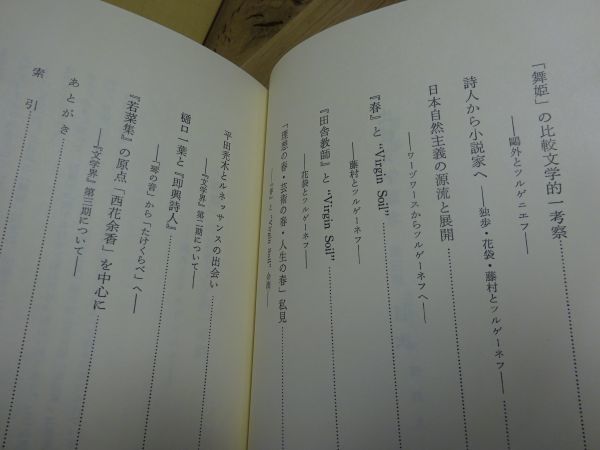 「舞姫」の比較文学的一考察
――鷗外とツルゲニエフ――
詩人から小説家へ――独歩・花袋・藤村とツルゲーネフ――
日本自然主義の源流と展開
――ワーヅワースからツルゲーネフへ――
『春』と“Virgin Soil”
――藤村とツルゲーネフ――
『田舎教師』と“Virgin Soil”
――花袋とツルゲーネフ――
「理想の春・芸術の春・人生の春」私見
平田禿木とルネッサンスの出会い
――『文学界』第二期について――
樋口一葉と『即興詩人』
――「琴の音」から「たけくらべ」へ――
『若菜集』の原点「西花余香」を中心に
――『文学界』第三期について――
あとがき
索引